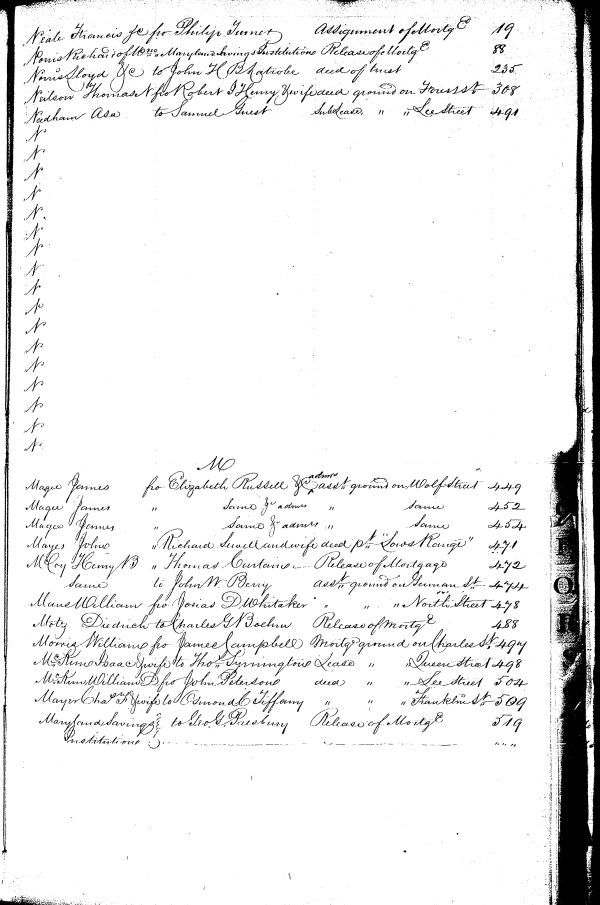 Neale Francis &c fro Philip Turner Assignment of Mortgᵉ 19
Norris Richard of Wm fro Maryland Savings Institution Release of Mortgᵉ 88
Norris Lloyd &c to John H B Latrobe deed of trust 235
Neilson Thomas N fro Robert I Henry & wife deed ground on Forrest St 308
Needham Asa to Samuel Guest Sub Lease " " Lee Street 491
N
N
N
N
N
N
N
N
N
N
N
N
N
N
N
N
N
M
Magee James fro Elizabeth Russell &c admrs asst ground on Wolf Street 449
Magee James " same &c admrs " same 452
Magee James " same &c admrs " same 454
Mayes John " Richard Sewell and wife deed pt "Lows Range" 471
McCoy Henry B " Thomas Curtain Release of Mortgage 472
same to John W Berry asst ground on German St 474
Maus William fro Josias D Whitaker " " " North Street 478
Moty Diedrich to Charles G Boehm Release of Mortgᵉ 488
Morris William fro James Campbell Mortgᵉ ground on Charles St 497
McKim Isaac & wife to Thos Symington Lease " " Queen Street 498
McKim William D fro John Peterson deed " " Lee Street 504
Mayer Chas F & wife to Osmond C Tiffany " " " Franklin St 509
Maryland Savings to Geo G Presbury Release of Mortgᵉ 519
Institution " " "